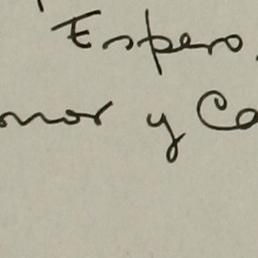 Espero,
onor y Co